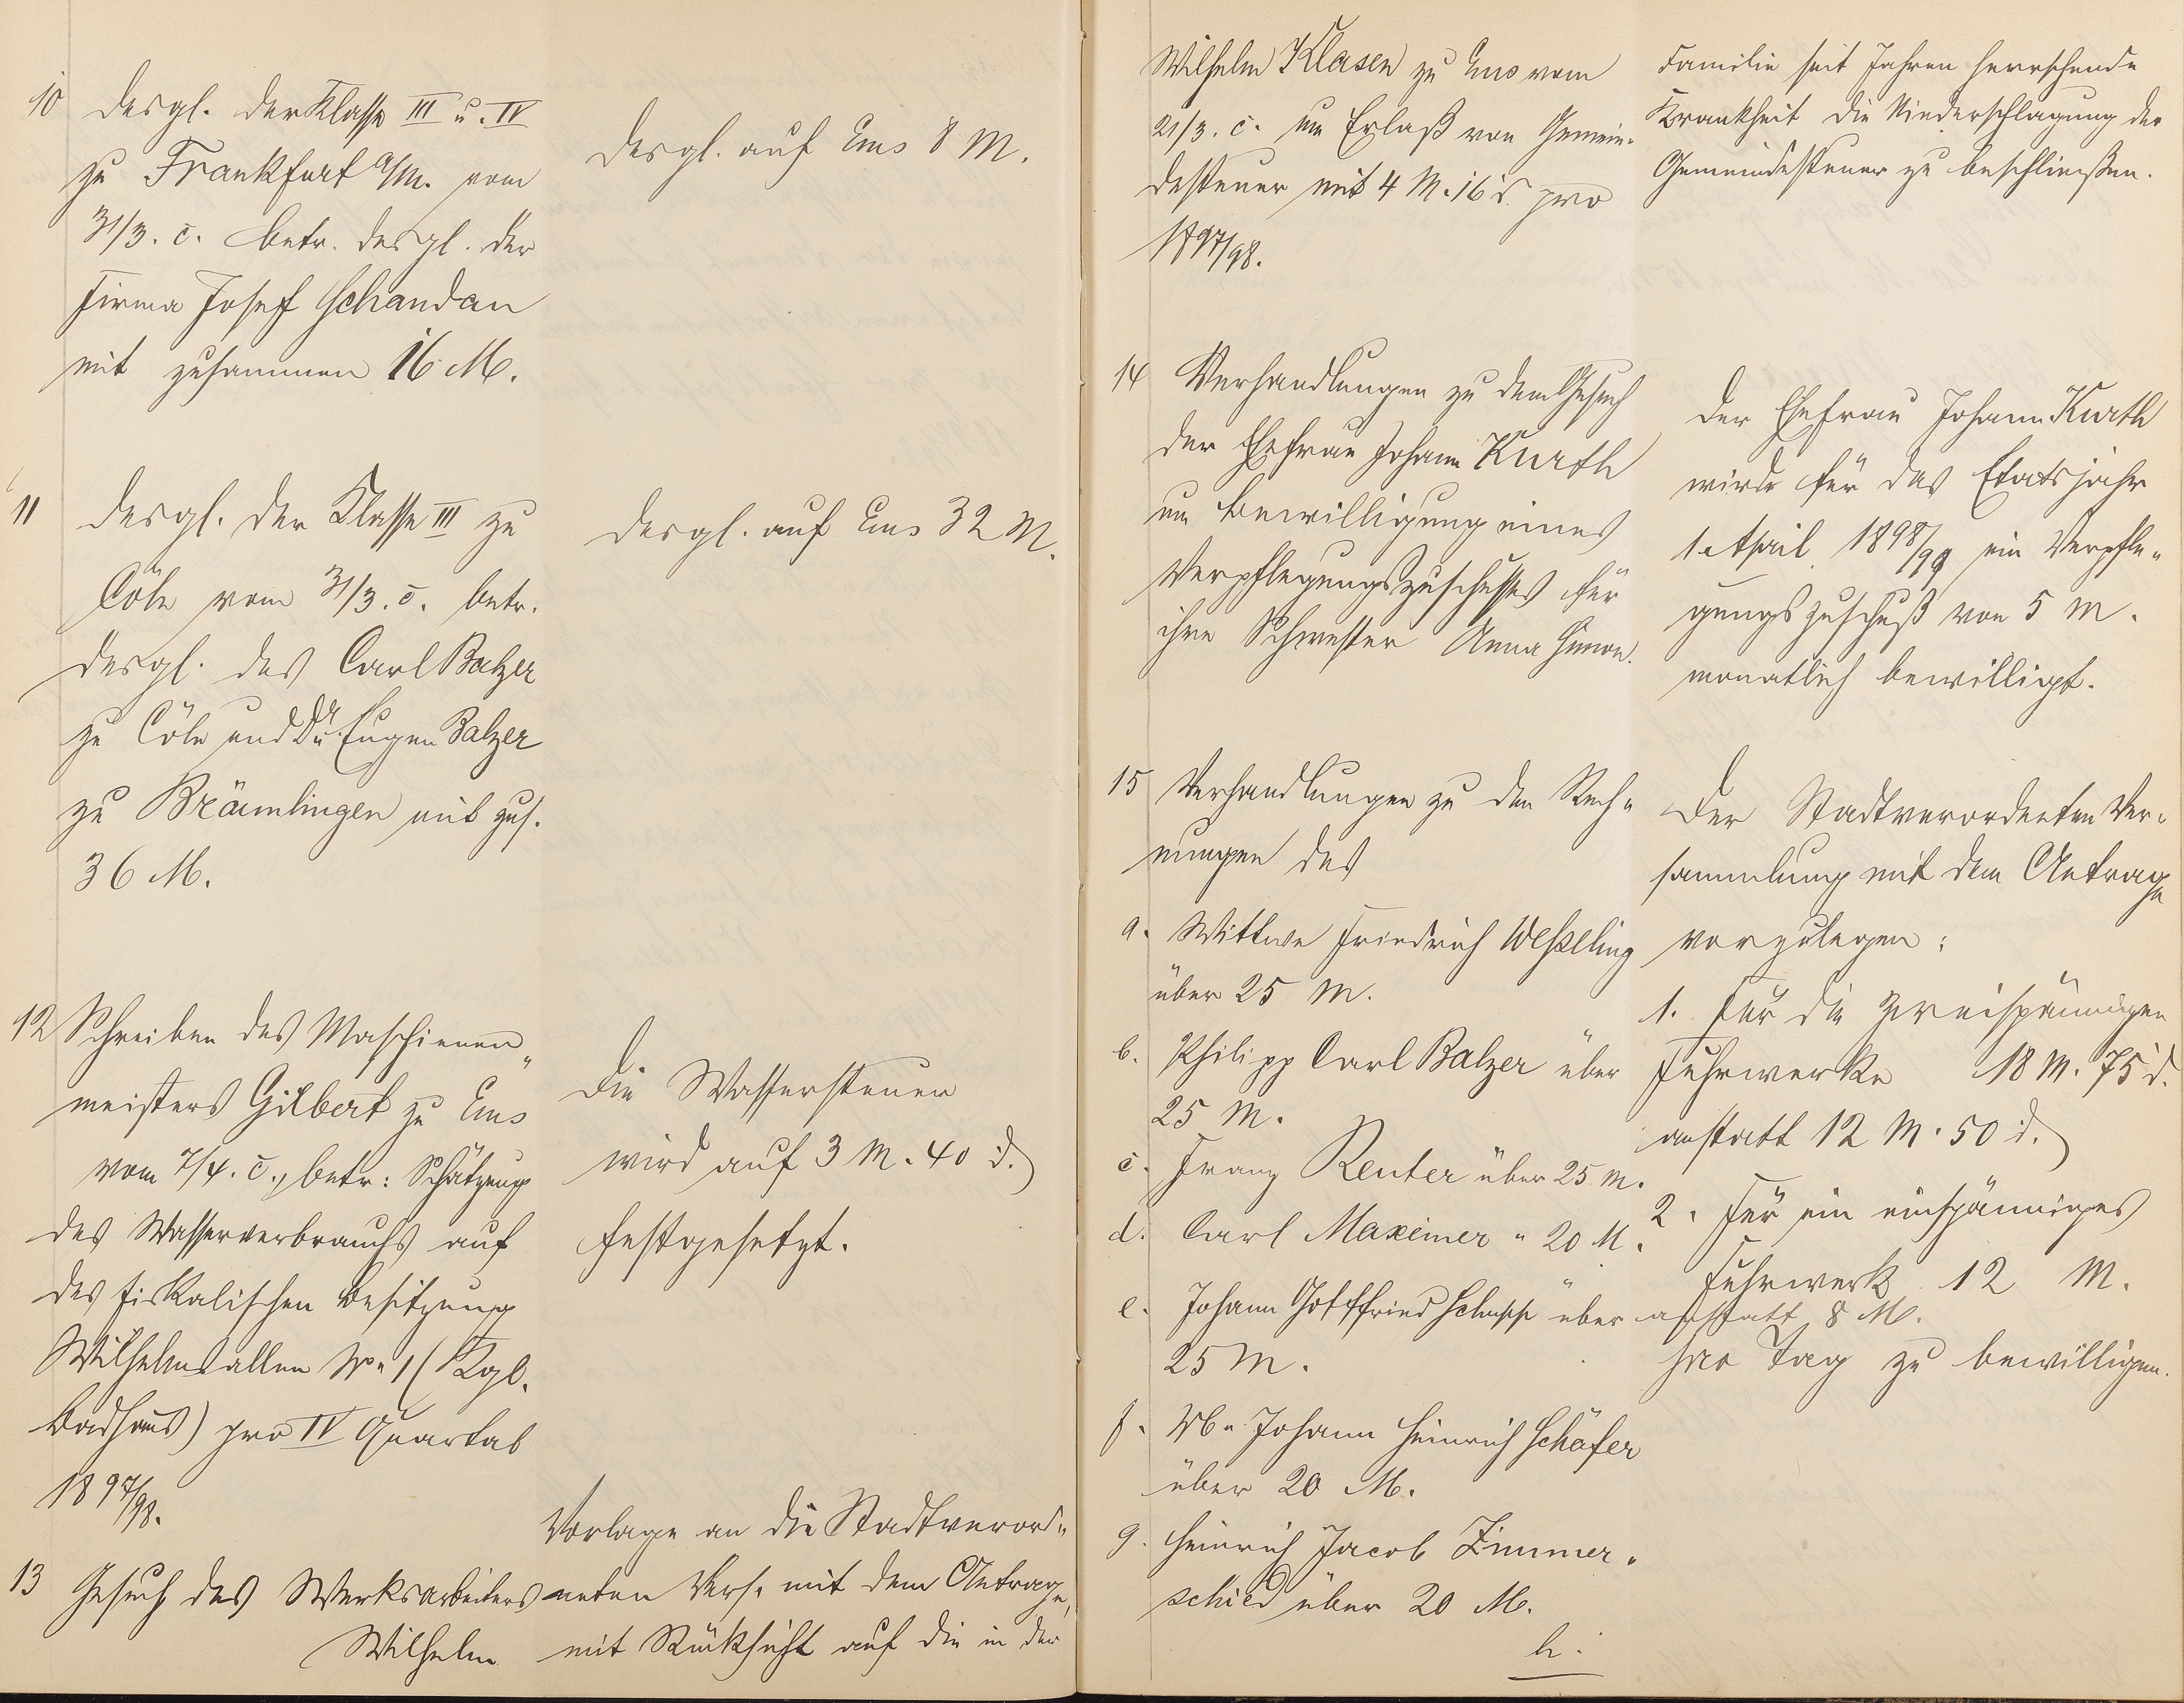 10 desgl. der Klasse III u. IV
zu Frankfurt a/M. vom
31/3. c. betr. desgl. der
Firma Josef Schandan
mit zusammen 16 M.
desgl. auf Ems 8 M.
11 desgl. der Klasse III zu
Cöln vom 31/3. c. betr.
desgl. des Carl Balzer
zu Cöln und Eugen Balzer
zu Bräunlingen mit zus.
36 M.
desgl. auf Ems 32 M.
12 Schreiben des Maschienen„
meisters Gilbert zu Ems
vom 7/4. c., betr: Schätzung
des Wasserverbrauchs auf
des fiskalischen Besitzung
Wilhelmsallee No 1 (Kgl.
Badhaus) pro IV Quartal
1897/98.
Die Wassersteuer
wird auf 3 M. 40 d.
festgesetzt.
13 Gesuch des Werksarbeiters
Wilhelm
Vorlage an die Stadtverord„
neten Vers. mit dem Antrage,
mit Rücksicht auf die in der
Wilhelm Klasen zu Ems vom
21/3. c. um Erlaß von Gemein„
desteuer mit 4 M. 16 d. pro
1897/98.
Familie seit Jahren herrschende
Krankheit die Niederschlagung der
Gemeindesteuer zu beschließen.
14 Verhandlungen zu dem Gesuch
der Ehefrau Johann Kurth
um Bewilligung eines
Verpflegungszuschusses für
ihre Schwester Anna Simon.
Der Ehefrau Johann Kurth
wird für das Etatsjahr
1. April 1898/99 ein Verpfle„
gungszuschuß von 5 M.
monatlich bewilligt.
15 Verhandlungen zu den Rech„
nungen des
a. Wittwe Friedrich Weßeling
über 25 M.
b. Philipp Carl Balzer über
25 M.
c. Franz Reuter über 25 M.
d. Carl Maxeiner " 20 M.
e. Johann Gottfried Schupp über
25 M.
f. W. Johann Heinrich Schäfer
über 20 M.
g. Heinrich Jacob Zimmer„
schied über 20 M.
h.
Der Stadtverordneten Ver„
sammlung mit dem Antrage
vorzulegen:
1. Für die zweispännigen
Fuhrwerke 18 M. 75 d.
anstatt 12 M. 50 d.
2. Für ein einspänniges
Fuhrwerk 12 M.
anstatt 8 M.
pro Tag zu bewilligen.